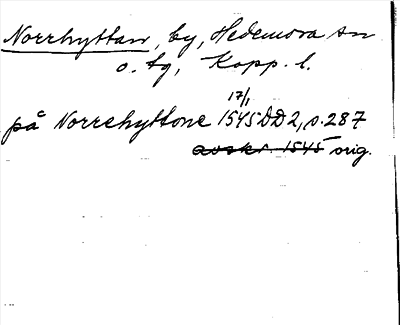 Norrhyttan, by, Hedemora sn
o. tg, Kopp. l.
17/1
på Norrehyttone 1545 DD2, s. 287
avskr. 1545 orig.